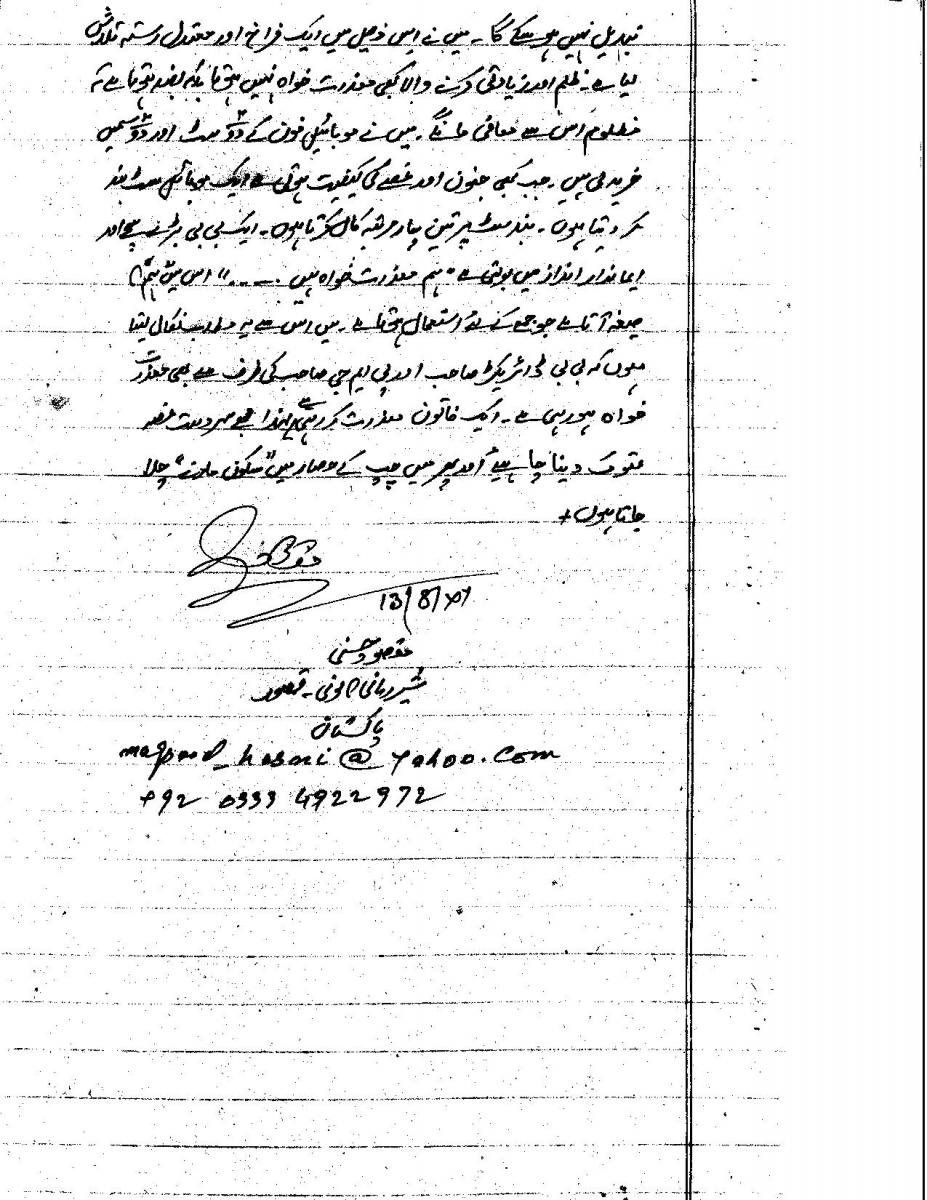 تبدیل نہیں ہو سکے گا۔ میں نے اس ذیل میں ایک فراخ اور معتدل رستہ تلاش
لیا ہے۔ ظلم اور زیادتی کرنے والا کبھی معذرت خواہ نہیں ہوتا بلکہ بضد ہوتا ہے کہ
مظلوم اس سے معافی مانگے۔ میں نے موبائیل فون کے دو سٹ اور دو سمیں
خرید لی ہیں۔ جب کبھی جنون اور غصے کی کیفیت ہوتی ہے ایک موبائیل سٹ بند
کر دیتا ہوں۔ بند سٹ پر تین چار مرتبہ کال کرتا ہوں۔ ایک بی بی بڑے سچے اور
ایماندار انداز میں بولتی ہے "ہم معذرت خواہ ہیں ۔۔۔۔" اس میں (ہم)
صیغہ آتا ہے جو جمع کے لئے استعمال ہوتا ہے۔ میں اس سے یہ مطلب نکال لیتا
ہوں کہ بی بی ڈائریکٹر صاحب اور پی ایم جی صاحب کی طرف سے بھی معذرت
خواہ ہو رہی ہے۔ ایک خاتون معذرت کر رہی ہے لہذا مجھے سردست غصہ
تھوک دینا چاہیئے اور پھر میں چپ کے حصار میں "سکونی حالت" چلا
جاتا ہوں+
13/8/
مقصود حسنی
شیر ربانی کالونی۔ قصور
پاکستان
maqsood_hasni@yahoo.com
+92 0333 4922972